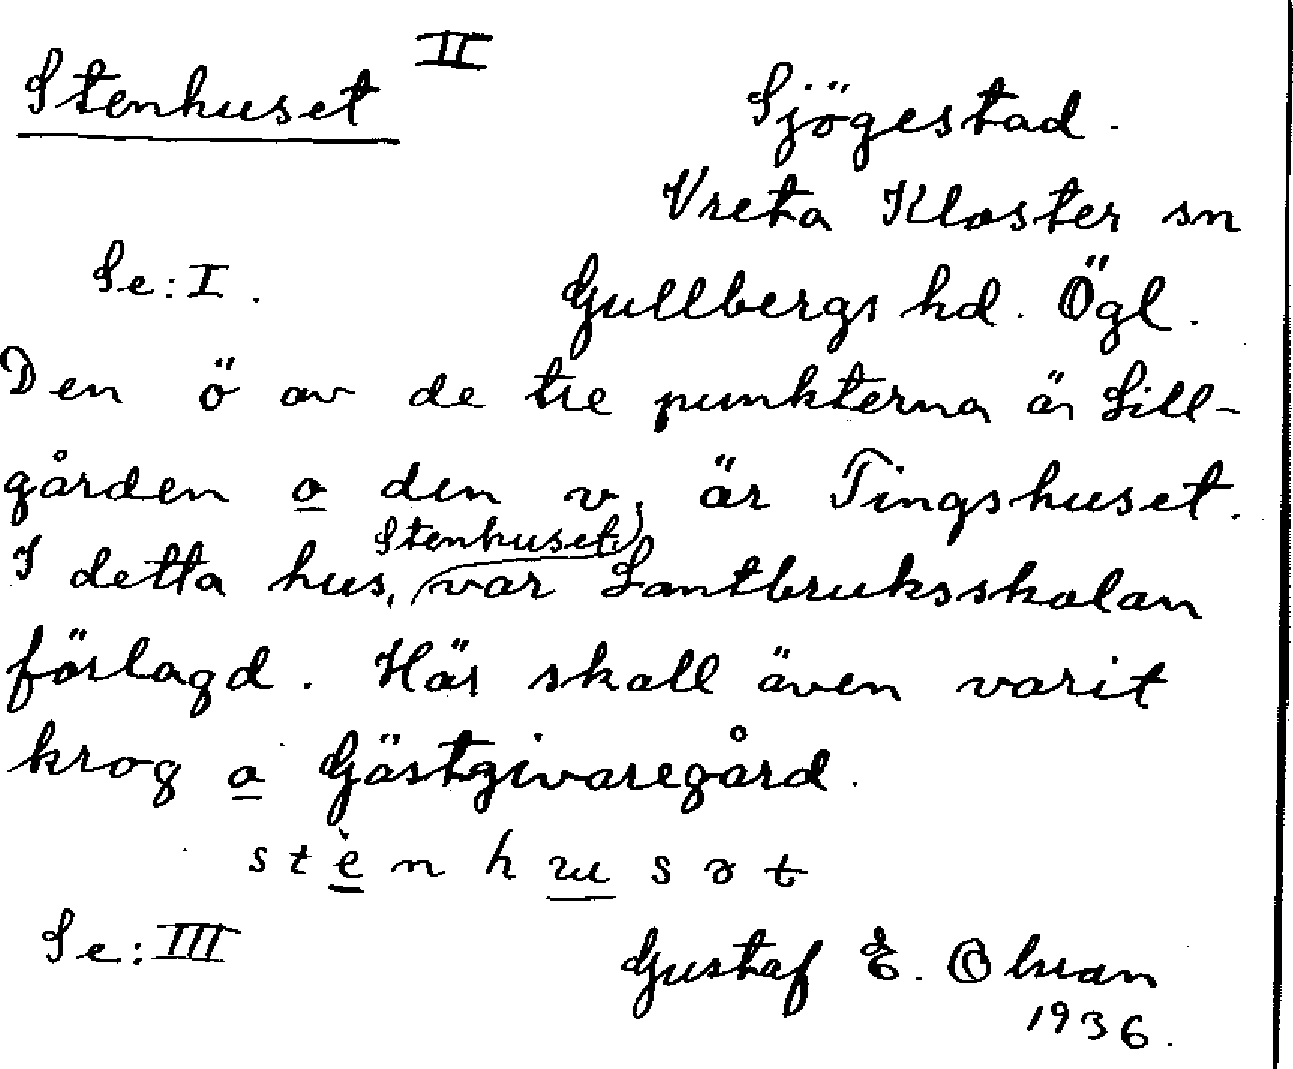 Stenhuset II
Sjögestad.
Vreta Kloster sn
Se: I.
Gullbergs hd. Ögl.
Den ö av de tre punkterna är Lill-
gården o den v, är Tingshuset.
I detta hus, (Stenhuset) var Lantbruksskolan
förlagd. Här skall även varit
krog o Gästgivaregård.
stènhusət
Se: III
Gustaf E.
1936.